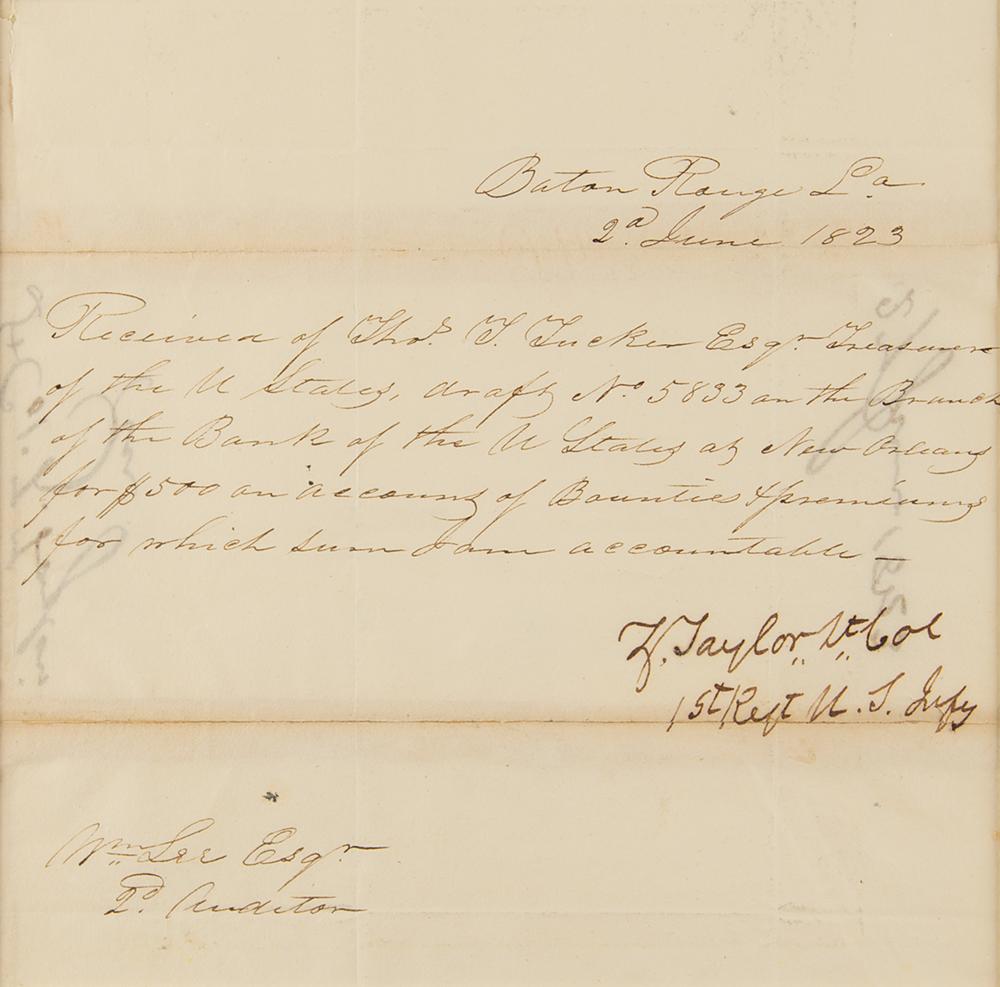 Baton Rouge La.
2d. June 1823
Received of Thos. T. Tucker Esqr. Treasurer
of the U States, draft No. 5833 on the Branch
of the Bank of the U States at New Orleans
for $500 on account of Bounties & premiums
for which sum I am accountable —
Z. Taylor Lt. Col
1st Regt U. S. Infy
Wm Lee Esqr
2d. Auditor